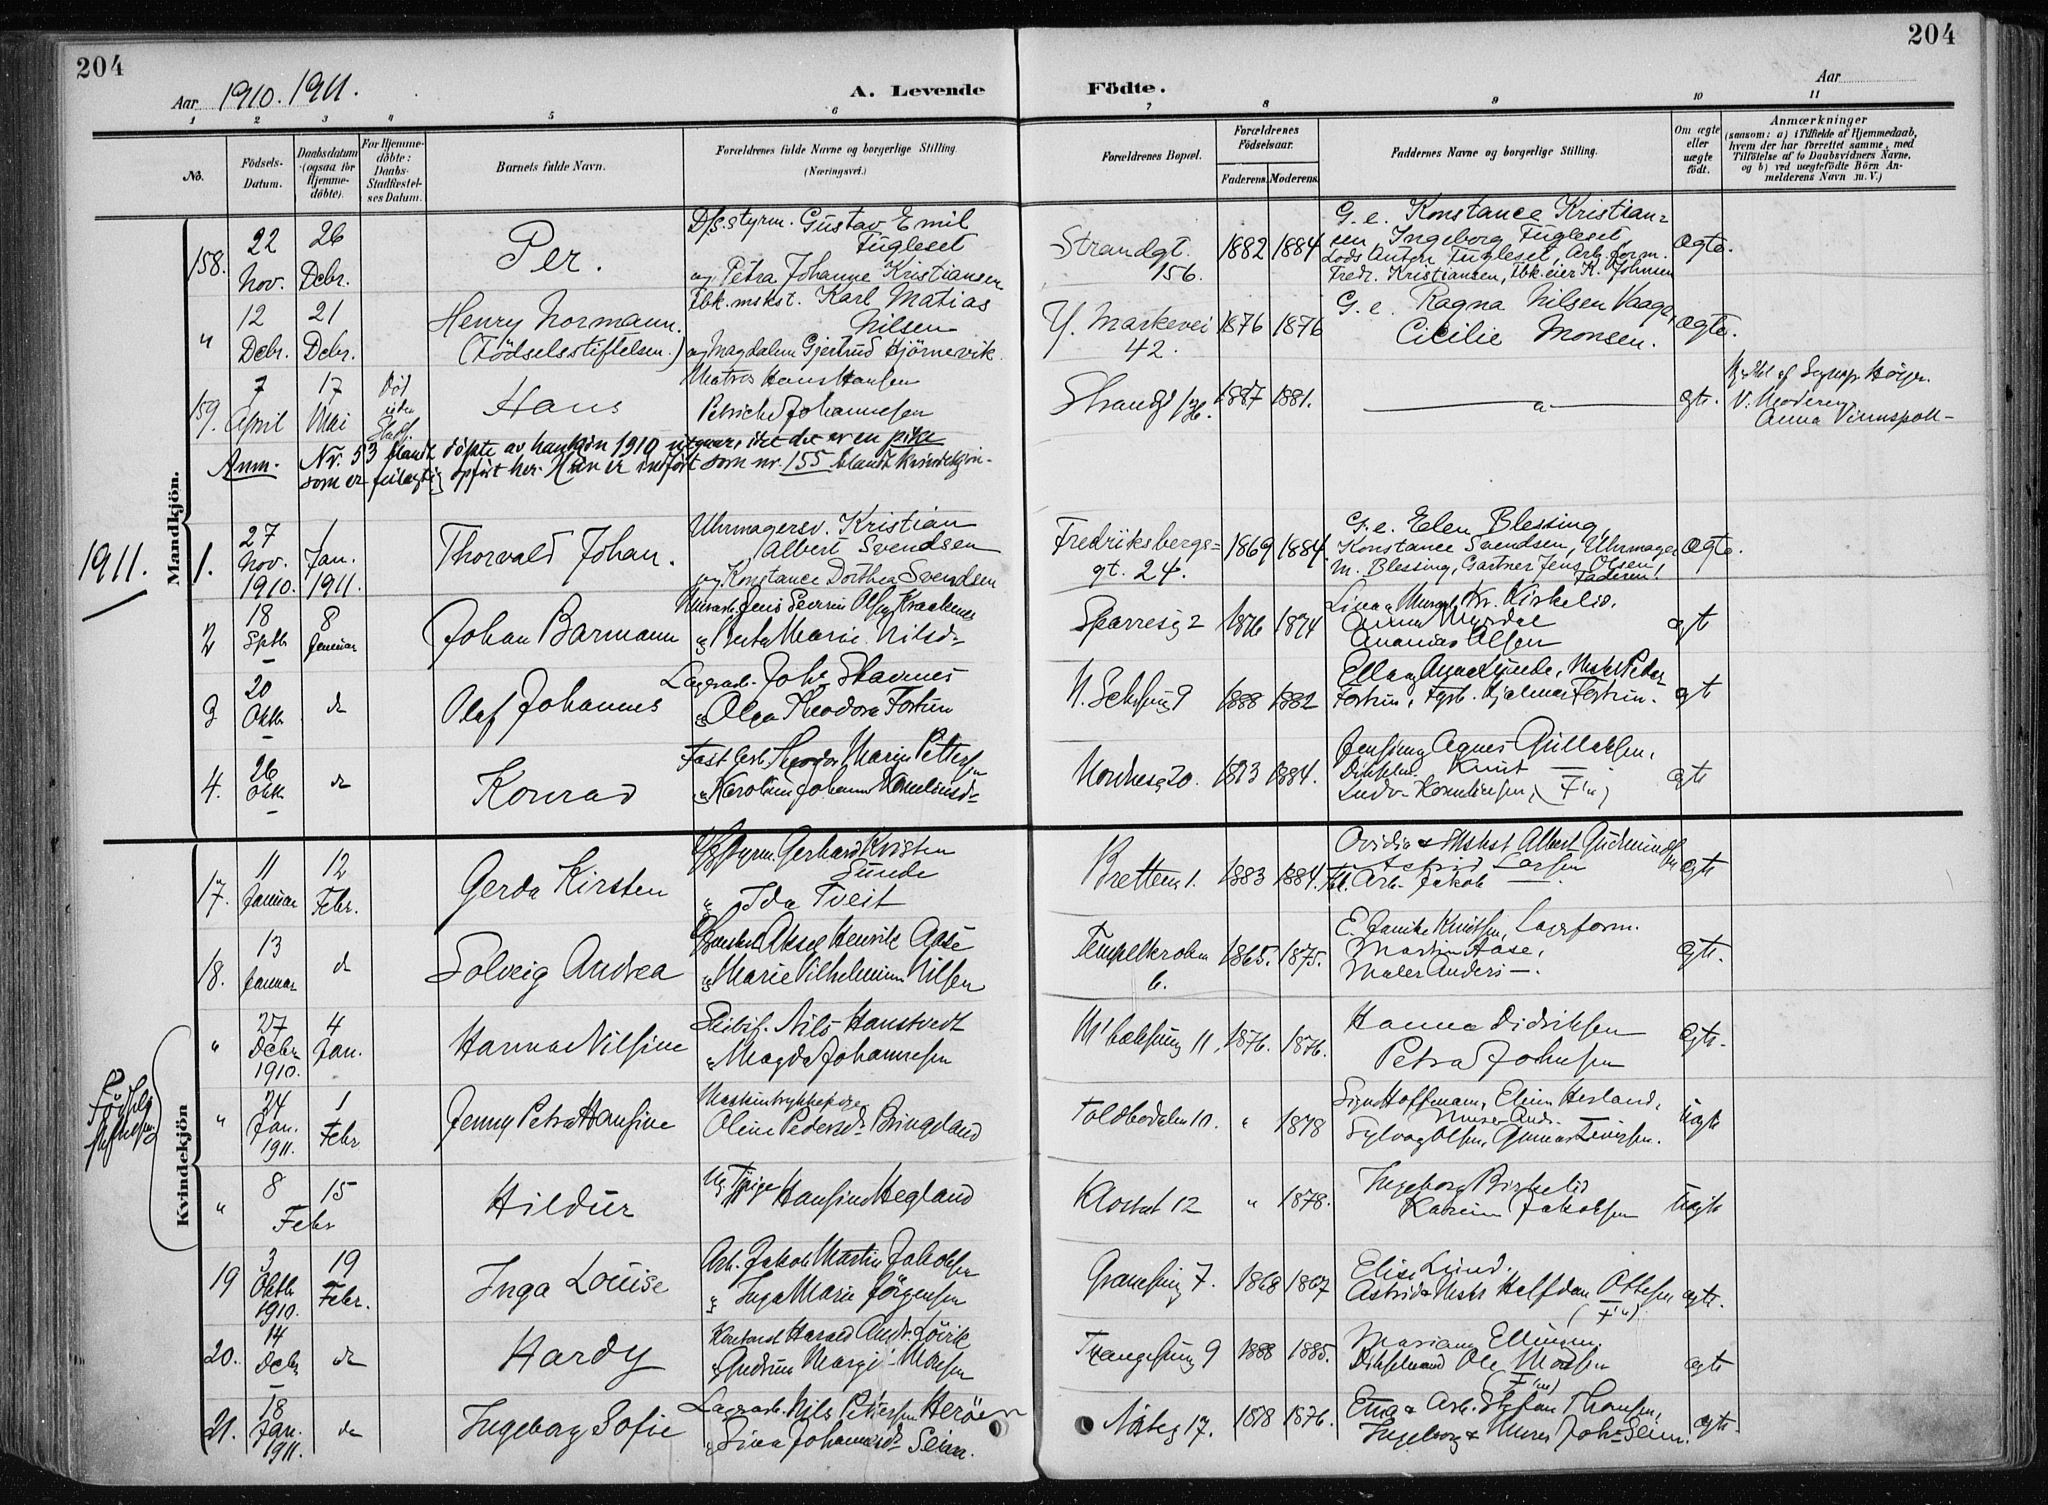 204
204
Aar 1910. 1911.
A. Levende
Födte.
Aar
1 2 3 4 5 6 7 8 9 10 11
No.
Födsels-Datum.
Daabsdatum (ogsaa for Hjemme-döbte).
For Hjemme-döbte: Daabs-Stadfæstel-ses Datum.
Barnets fulde Navn.
Forældrenes fulde Navne og borgerlige Stilling
(Næringsvei.)
Forældrenes Bopæl.
Forældrenes Födselsaar.
Faderens. Moderens.
Faddernes Navne og borgerlige Stilling.
Om ægte eller uægte födt.
Anmærkninger
(saasom: a) i Tilfælde af Hjemmedaab, hvem der har forrettet samme, med Tilföielse af to Daabsvidners Navne, og b) ved uægtefödte Börn An-melderens Navn m. V.)
Mandkjön.
158. 22 Nov. 26 Debr. Per. D/s. styrm. Gustav Emil Fugleset og Petra Johanne Kristiansen Strandgt. 156. 1882 1884 G. e. Konstance Kristian-sen, Ingeborg Fugleset, Lods Anton Fugleset, Arb. form. Fredr. Kristiansen, Fbk. eier K. Johnsen ægte.
" 12 Debr. 21 Debr. Henry Normann. (Födselsstiftelsen.) Fbk. mskst. Karl Matias Nilsen og Magdalena Gjertrud Hjörnevik. Y. Markevei 42. 1876 1876 G. e. Ragna Nilsen Vaage, Cicilie Monsen. ægte.
159. 7 April 17 Mai Död uden Stadf. Hans Matros Hans Hansen Petriche Johannesen Strandgt 126. 1887 1881. ægte. V. Moderen, Anna
Anm. Nr. 53 blandt döpte av hankjön 1910 utgaar, idet det er en pike
som er feilagtig opfört her. Hun er indfört som nr. 155 blandt kvindekjön.
1911.
1. 27 Nov. 1910. 1 Jan. 1911. Thorvald Johan. Uhrmagersv. Kristian Albert Svendsen og Konstance Dorthea Svendsen Fredriksbergs-gt. 24. 1869 1884. G. e. Elen Blessing, Konstance Svendsen, Uhrmager M. Blessing, Gartner Jens Olsen, Faderen! ægte.
2 18 Septb 8 Januar Johan Barmann Murarb. Jens Severin Olsen Kraakenes og Berta Marie Nilsd. Sparresg 2 1876 1874 Lina & Murarb. Kr. Kirkelid, Anna Myrdal Ananias Olsen ægt
3 20 Oktb do Olaf Johannes Lagerarb. Johs Stavnes og Olga Theodora Fortun 1888 1882 Ella og Anna Lunde, Mskst Peder Fortun, Fyrb. Hjalmar Fortun. ægt
4. 26 Oktb do Konrad Fast Arb. Theodor Marin Pettersen og Karoline Johanne Kornelinusd. Nordnesg 20. 1884. Agnes Gullaksen, Knut Ludv. Kornelinsen, (F'n) ægte
Kvindekjön
17. 11 Januar 12 Febr. Gerda Kirsten D/s styrm. Gerhard Kristen Sunde og Ida Tveit Brettesm 1. 1883 1884. Ovidia & Mskst Albert Gudmundsen Astrid Larsen Arb. Jakob ægte
18. 13 Januar do Solveig Andrea Aksel Henrik Aase og Marie Vilhelmine Nilsen Tempelkroken 6. 1865. 1875. E. Janike Knutsen, Lagerform. Martin Aase, Maler Anders ægte.
Födsels stiftelsen
" 27 Debr 1910. 4 Jan. Hanna Nilsine Skibsf. Nils Hanstvedt og Magda Johannesen 11. 1876. 1876. Hanna Didriksen Petra Johnsen ægte.
" 24 Jan. 1911. 1 Febr. Jenny Petra Hansine Maskintrykkepige Oline Pedersd. Bringeland Toldbodalm 10. " 1878 Signe Hoffmann, Elin Herland, Murer And. Sylvag Olsen, Gunnar Iversen. uægte
" 8 15 Febr Hildur Ug. Pige Hansine Hegland Klostret 12 " 1878. Ingeborg Birkelid Karen Jakobsen uægte
19 3 Oktb 1910. 19 Febr. Inga Louise Arb. Jakob Martin Jakobsen og Inga Marie Jörgensen Granesmg 7. 1868 1867 Elise Lund. Astrid & Mskst Halfdan Ottesen (F'n) ægte.
20. 14 Debr do Hardy Kontorist Harald Andr. Lövik og Gudrun Margr. Monsen Trangesmg 9 1888 1885. Mariane Ellingsen, Ole Monsen (F'n) ægte
21. 18 Jan. 1911. do Ingeborg Sofie Lagerarb. Nils Pettersen Heröen og Sina Johannesd. Seim. Nösteg 17. 1878 1876. Emma & Arb. Stefan Thomsen, Ingeborg & Murer Johs Seim. ægte.